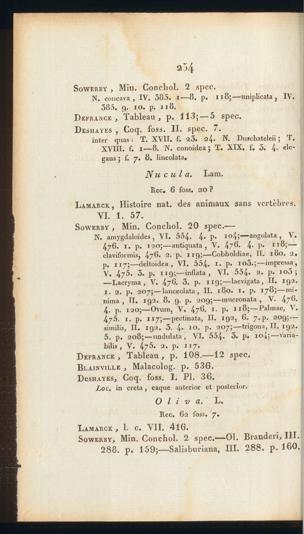 254
SOWERBY, Min. Conchol. 2 spec.
N. concava, IV. 385. 1—8. p. 118;—uniplicata, IV.
385. 9. 10. p. 118.
DEFRANCE, Tableau, p. 113;—5 spec.
DESHAYES, Coq. foss. II. spec. 7.
inter quas: T. XVII. f. 23. 24. N. Duschateleii; T.
XVIII. f. 1—8. N. conoidea; T. XIX. f. 3. 4. ele-
gans; f. 7. 8. lineolata.
Nucula. Lam.
Rec. 6 foss. 20?
LAMARCK, Histoire nat. des animaux sans vertèbres.
VI. 1. 57.
SOWERBY, Min. Conchol. 20 spec.—
N. amygdaloides, VI. 554. 4. p. 104;—angulata, V.
476. 1. p. 120;—antiquata, V. 476. 4. p. 118;—
claviformis, 476. 2. p. 119;—Cobboldiae, II. 180. 2.
p. 117;—deltoidea, VI. 554. 1. p. 103.;—impressa,
V. 475. 3. p. 119;—inflata, VI. 554. 2. p. 103;
—Lacryma, V. 476. 3. p. 119;—laevigata, II. 192.
1. 2. p. 207;—lanceolata, II. 180. 1. p. 178;—mi-
nima, II. 192. 8. 9. p. 209;—mucronata, V. 476.
4. p. 120;—Ovum, V. 476. 1. p. 118;—Palmae, V.
475. 1. p. 117;—pectinata, II. 192, 6. 7. p. 209;—
similis, II. 192. 3. 4. 10. p. 207;—trigona, II. 192.
5. p. 208;—undulata, VI. 554. 3. p. 104;—varia-
bilis, V. 475. 2. p. 117.
DEFRANCE, Tableau, p. 108.—12 spec.
BLAINVILLE, Malacolog. p. 536.
DESHAYES, Coq. foss. I. Pl. 36.
Loc. in creta, eaque anterior et posterior.
Oliva. L.
Rec. 62 foss. 7.
LAMARCK, l. c. VII. 416.
SOWERBY, Min. Conchol. 2 spec.—Ol. Branderi, III.
288. p. 159;—Salisburiana, III. 288. p. 160.